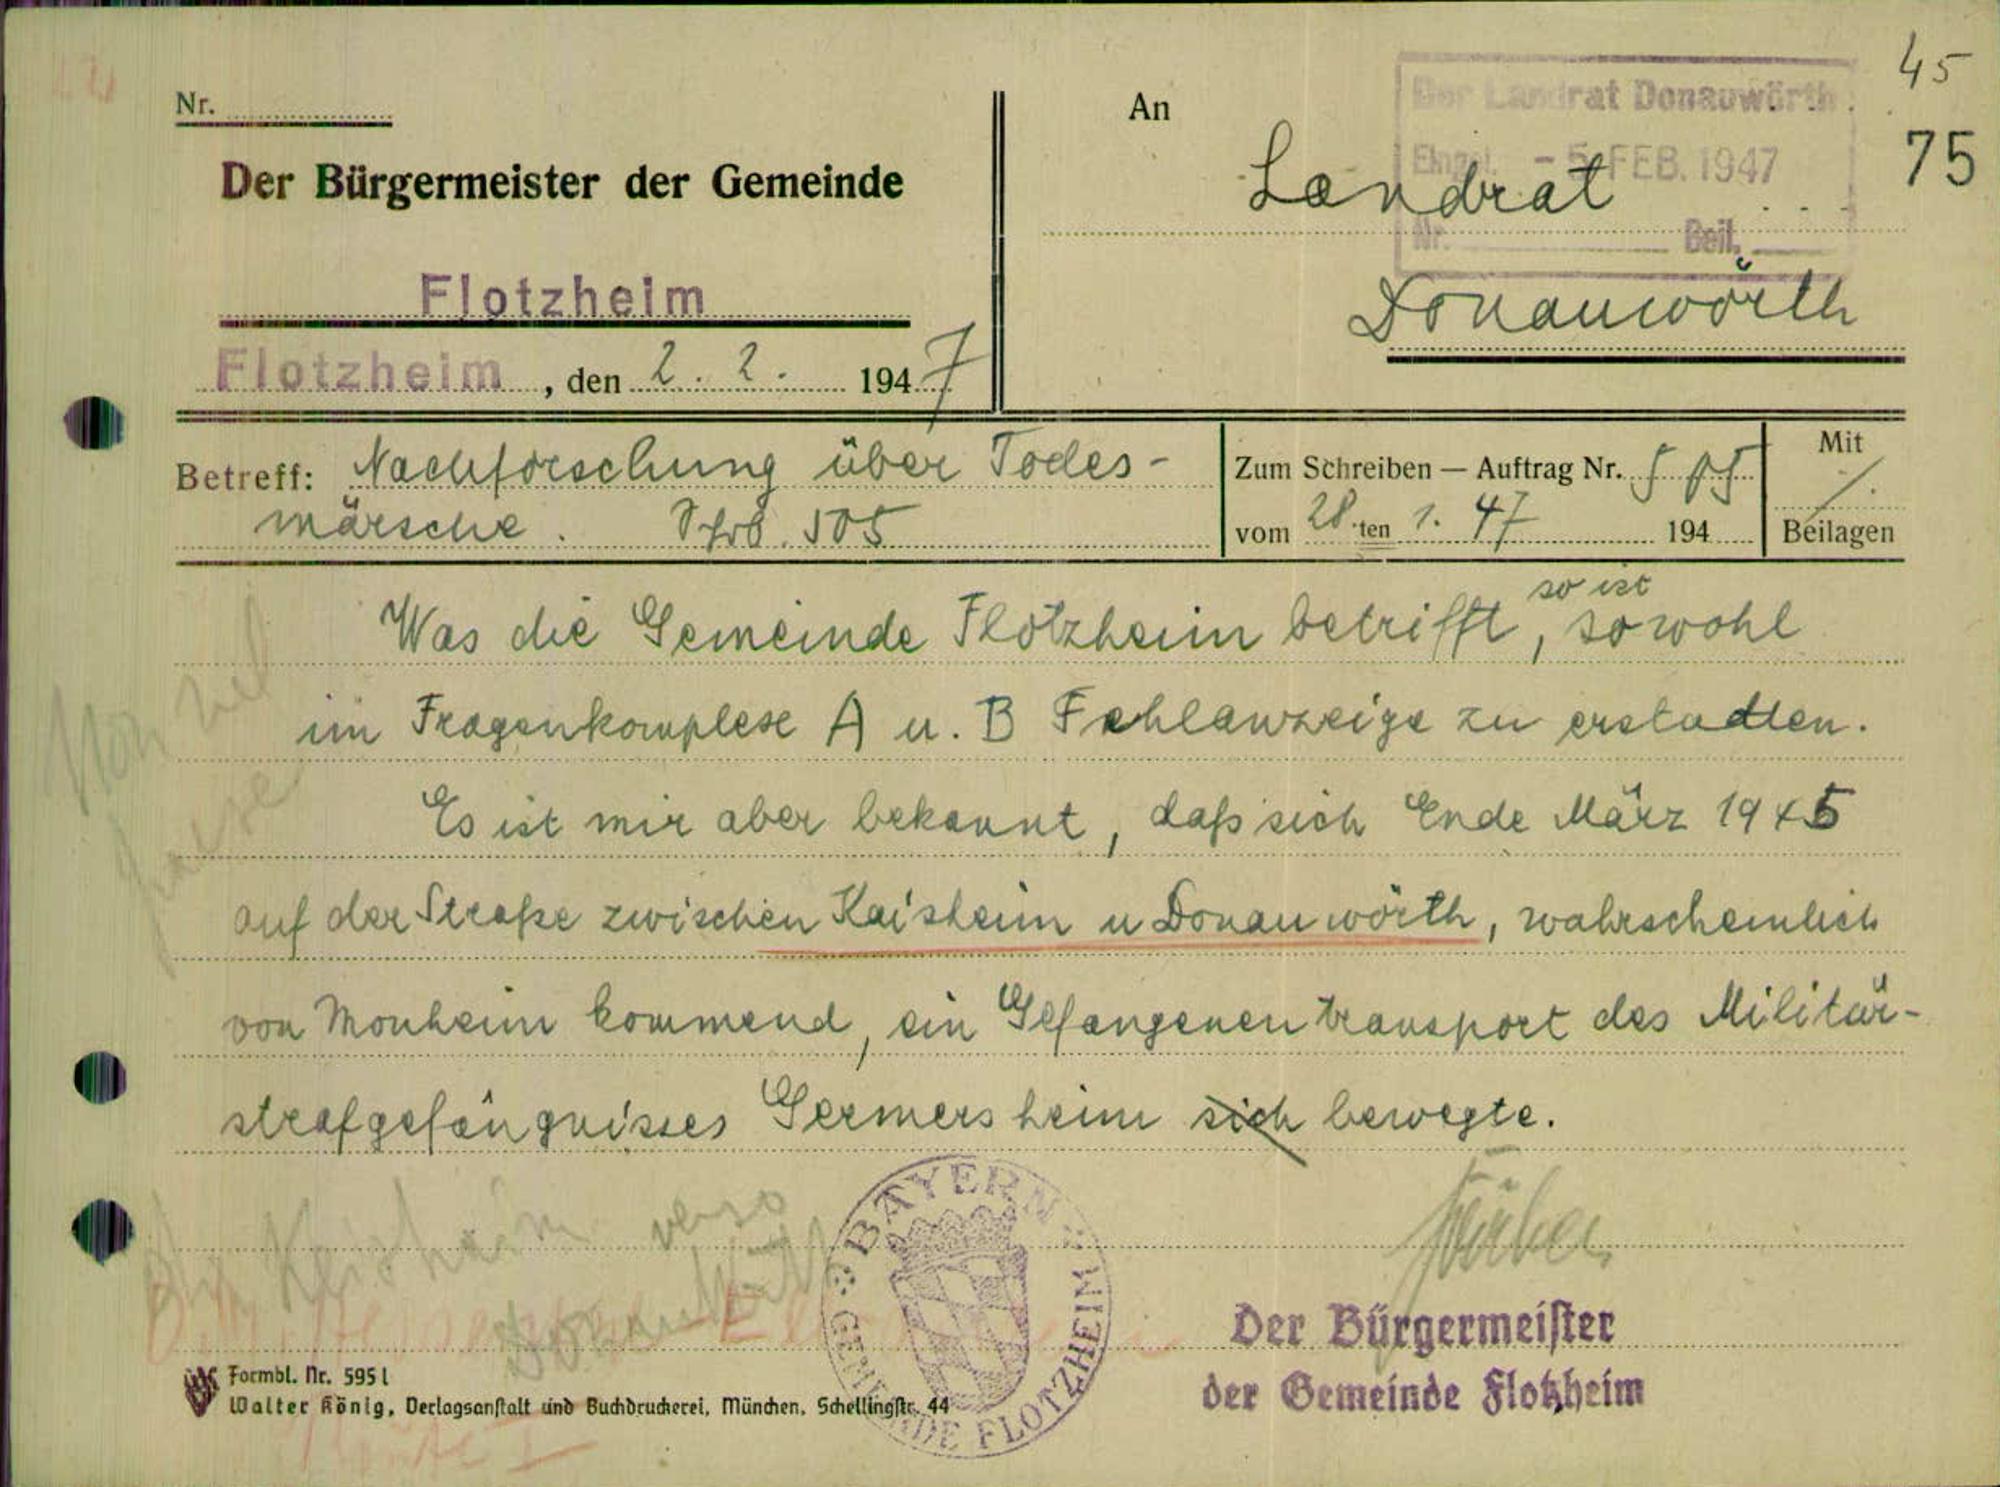 45
75
Nr.
Der Bürgermeister der Gemeinde
Flotzheim
Flotzheim, den 2. 2. 1947
An
Der Landrat Donauwörth
Eingel. - 5. FEB. 1947
Nr. Beil.
Landrat
Donauwörth
Betreff: Nachforschung über Todes-
märsche. 505
Zum Schreiben — Auftrag Nr. 505
vom 28.ten 1. 47 194
Mit
/.
Beilagen
so ist
Was die Gemeinde Flotzheim betrifft, sowohl
im Fragenkomplexe A u. B Fehlanzeige zu erstatten.
Es ist mir aber bekannt, daß sich Ende März 1945
auf der Straße zwischen Kaisheim u Donauwörth, wahrscheinlich
von Monheim kommend, ein Gefangenentransport des Militär-
strafgefängnisses Germersheim sich bewegte.
Kaisheim verso
Donauwörth
BAYERN
GEMEINDE FLOTZHEIM
Der Bürgermeister
der Gemeinde Flotzheim
Formbl. Nr. 595 l
Walter König, Verlagsanstalt und Buchdruckerei, München, Schellingstr. 44